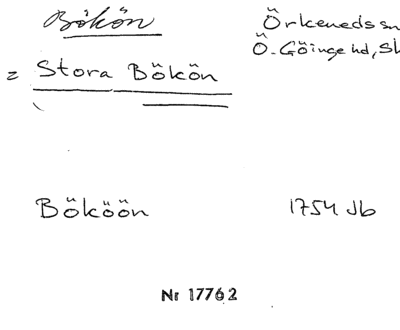 Bökön Örkeneds sn
Ö. Göinge hd, Sk
= Stora Bökön
Bököön 1754 Jb
Nr 17762